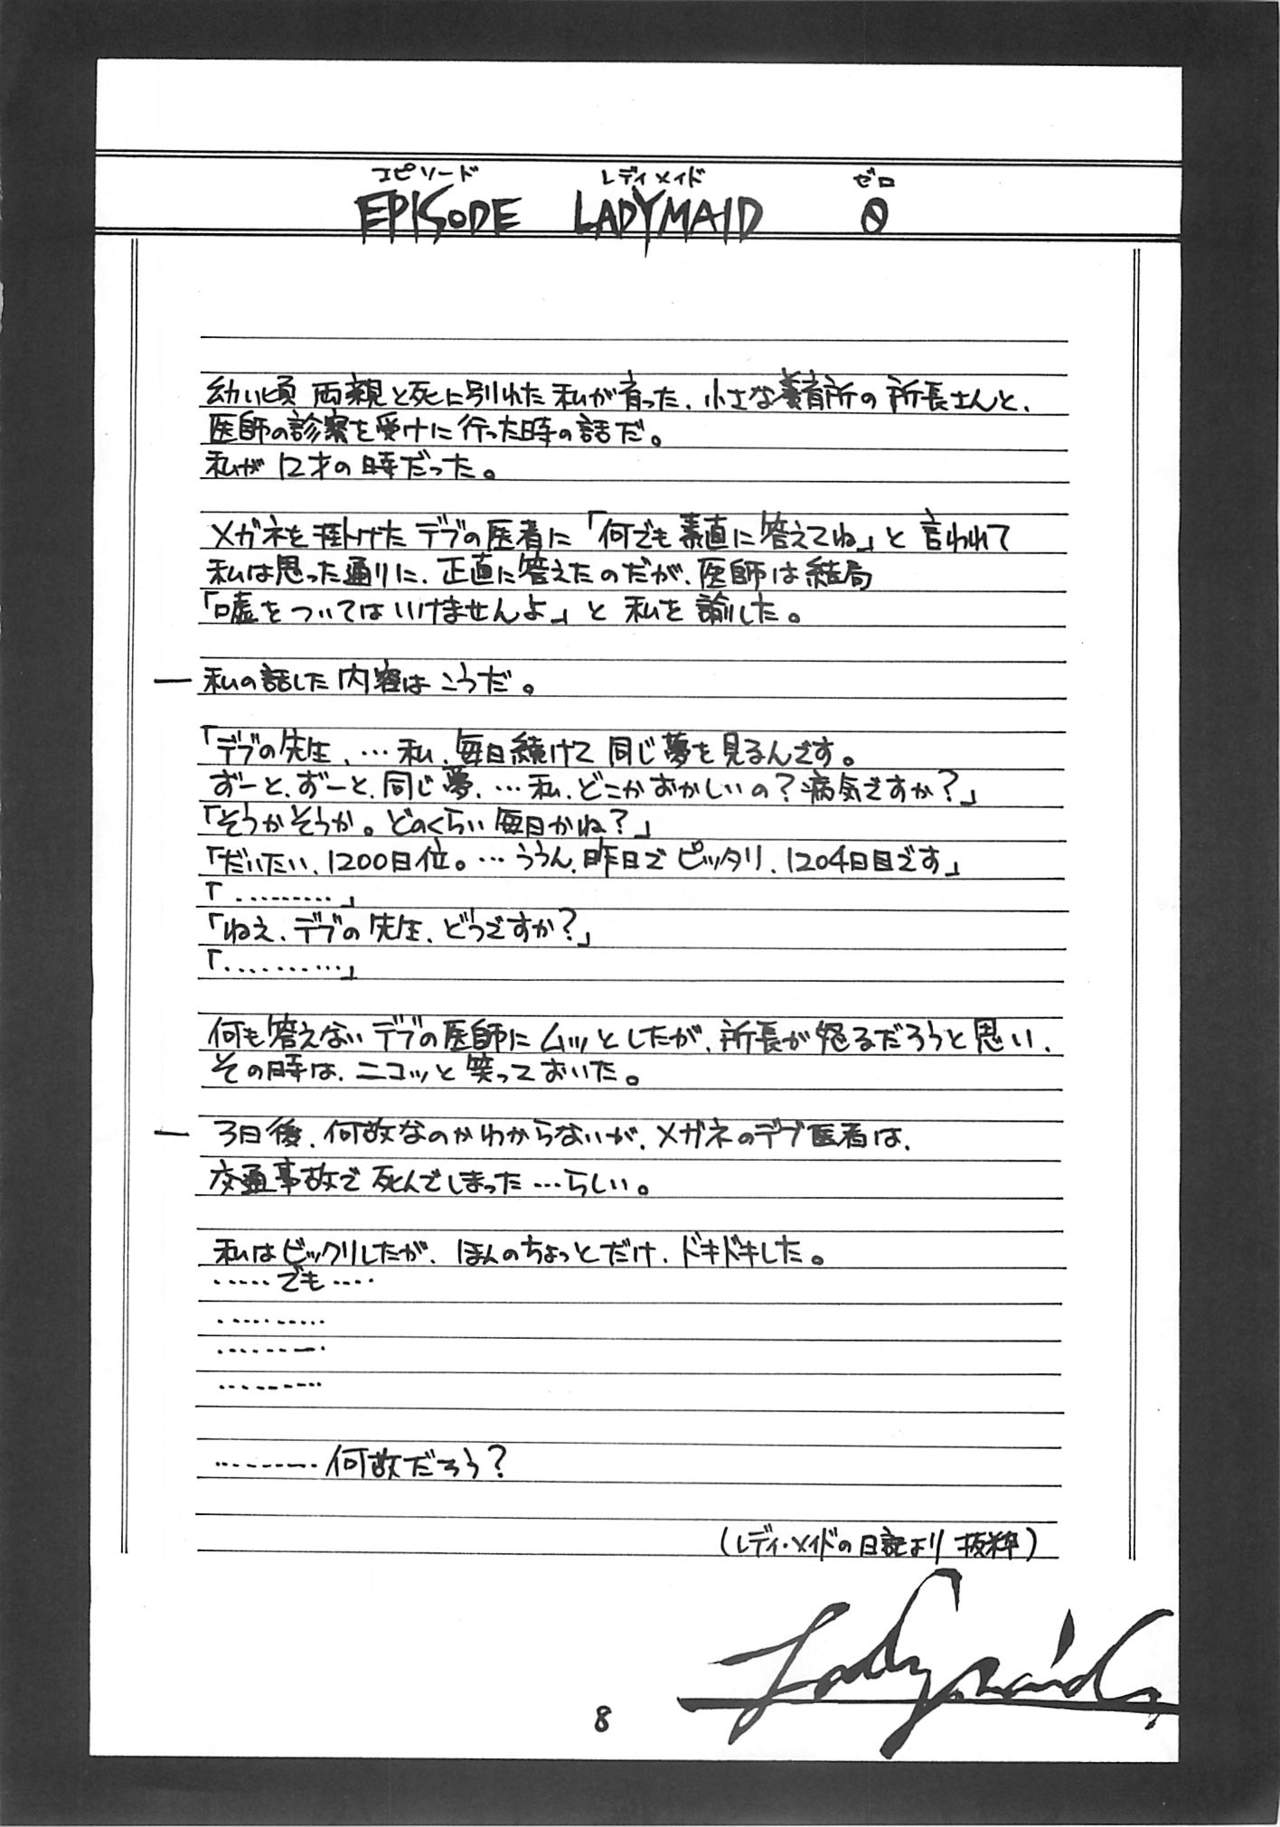 エピソード レディメイド ゼロ
EPISODE LADYMAID 0
幼い頃 両親と死に別れた 私が育った、小さな養育所の所長さんと、
医師の診察を受けに行った時の話だ。
私が12才の時だった。
メガネを掛けたデブの医者に「何でも素直に答えてね」と言われて
私は思った通りに、正直に答えたのだが、医師は結局
「嘘をついてはいけませんよ」と私を諭した。
― 私の話した内容はこうだ。
「デブの先生、…私、毎日続けて同じ夢を見るんです。
ずーと、ずーと、同じ夢、…私、どこかおかしいの?病気ですか?」
「そうかそうか。どのくらい毎日かね?」
「だいたい、1200日位。…ううん、昨日でピッタリ、1204日目です」
「………」
「ねえ、デブの先生、どうですか?」
「………」
何も答えないデブの医師にムッとしたが、所長が怒るだろうと思い、
その時は、ニコッと笑っておいた。
― 3日後、何故なのかわからないが、メガネのデブ医者は、
交通事故で死んでしまった…らしい。
私はビックリしたが、ほんのちょっとだけ、ドキドキした。
……でも……
………
………
………
………何故だろう?
(レディ・メイドの日記より抜粋)
Ladymaid
8